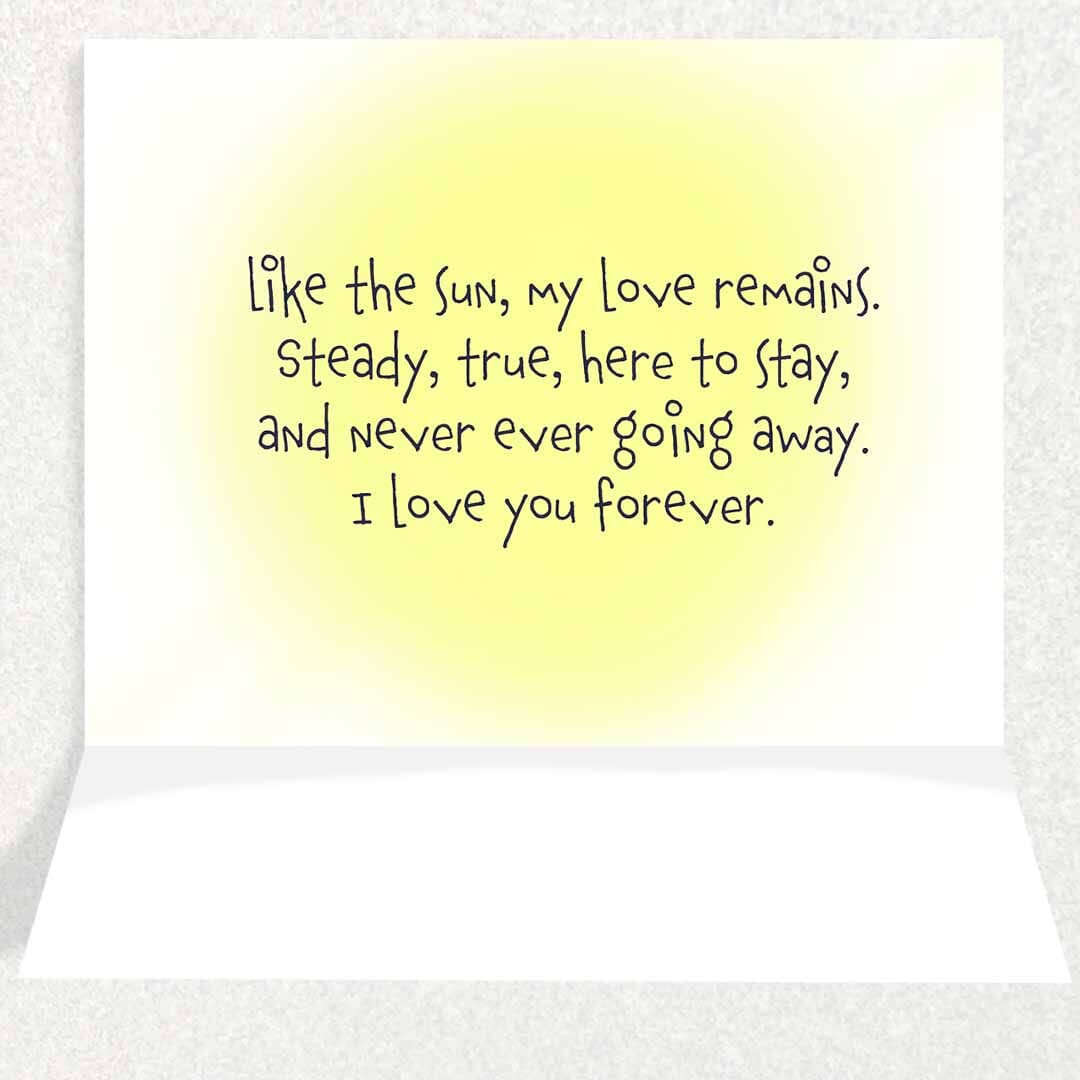 Like the sun, my love remains.
Steady, true, here to stay,
and never ever going away.
I love you forever.